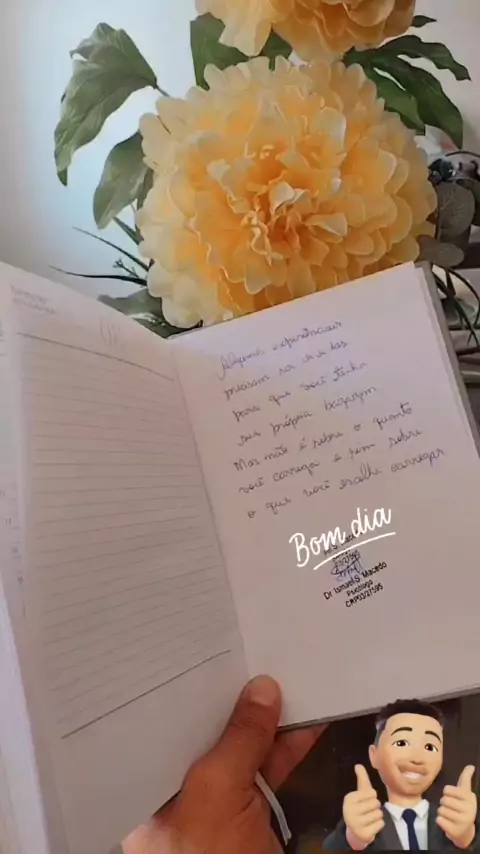 Algumas experiências
precisam ser vividas
para que você tenha
sua própria bagagem
Mas não é sobre o quanto
você carrega e sim sobre
o que você escolhe carregar
Bom dia
Dr. Ismael S. Macedo
Psicólogo